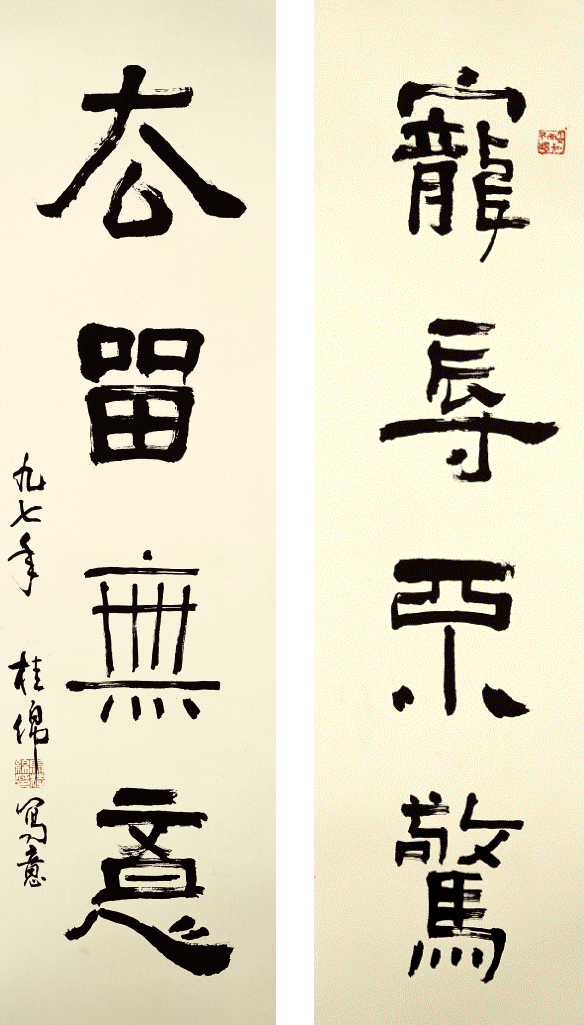 寵辱不驚
去留無意
九七年 桂綿 寫意